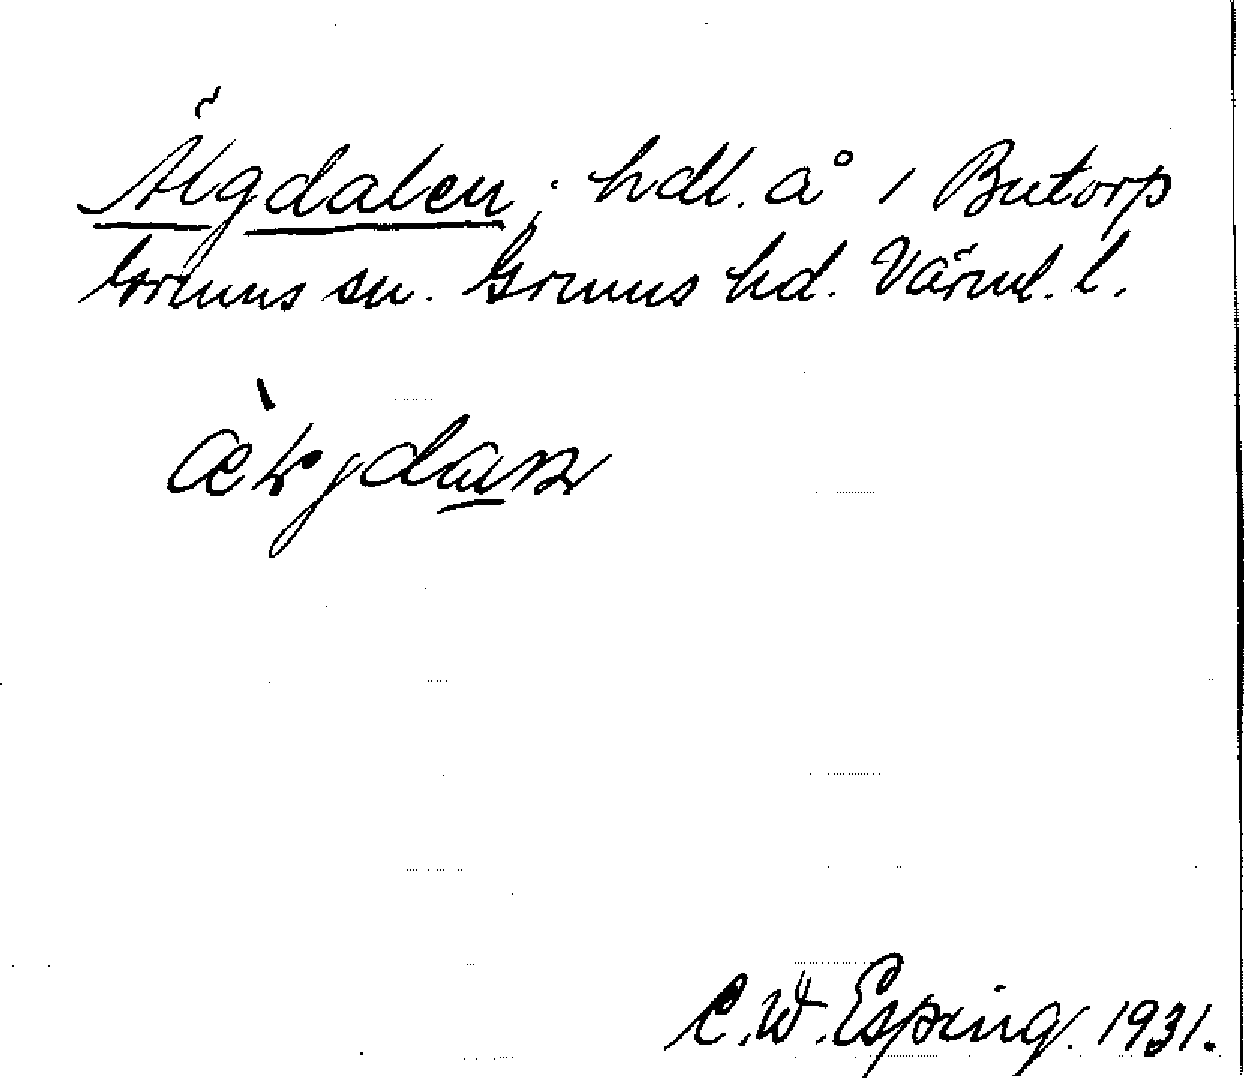 Älgdalen, hdl. å i Butorp
Grums sn. Grums hd. Värml. l.
C. W. Esping. 1931.